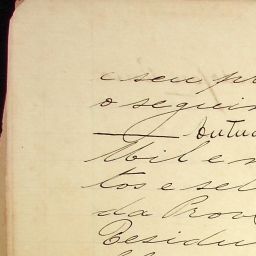 e seu pr
o seguin
outu
Mil e n
tos e set
da Prov
Residu